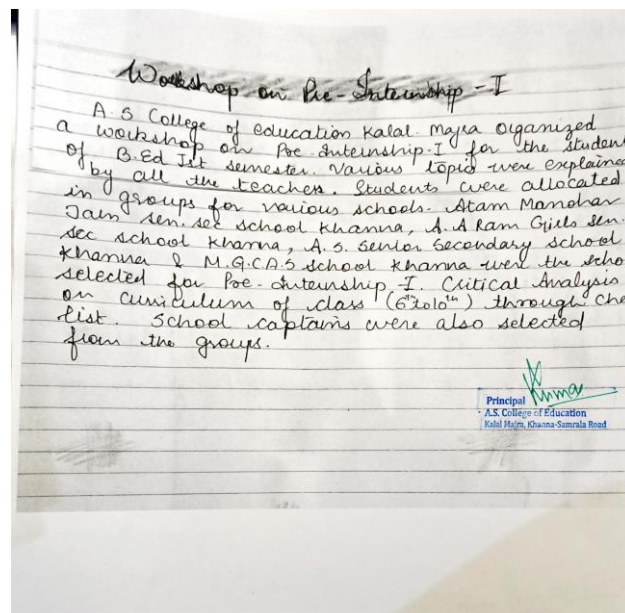 Workshop on Pre-Internship-I
A.S College of education Kalal-Majra Organized
a workshop on Pre-Internship-I for the student
of B.Ed Ist semester. Various topic were explained
by all the teachers. Students were allocated
in groups for various schools. Atam Manohar
Jain sen. sec school Khanna, A.A Ram Girls sen.
sec school Khanna, A.S. Senior Secondary school
Khanna & M.G.C.A.S school Khanna were the scho
selected for Pre-Internship-I. Critical Analysis
on curriculum of class (6th to 10th) through che
list. School captains were also selected
from the groups.
Principal
A.S. College of Education
Kalal Majra, Khanna-Samrala Road